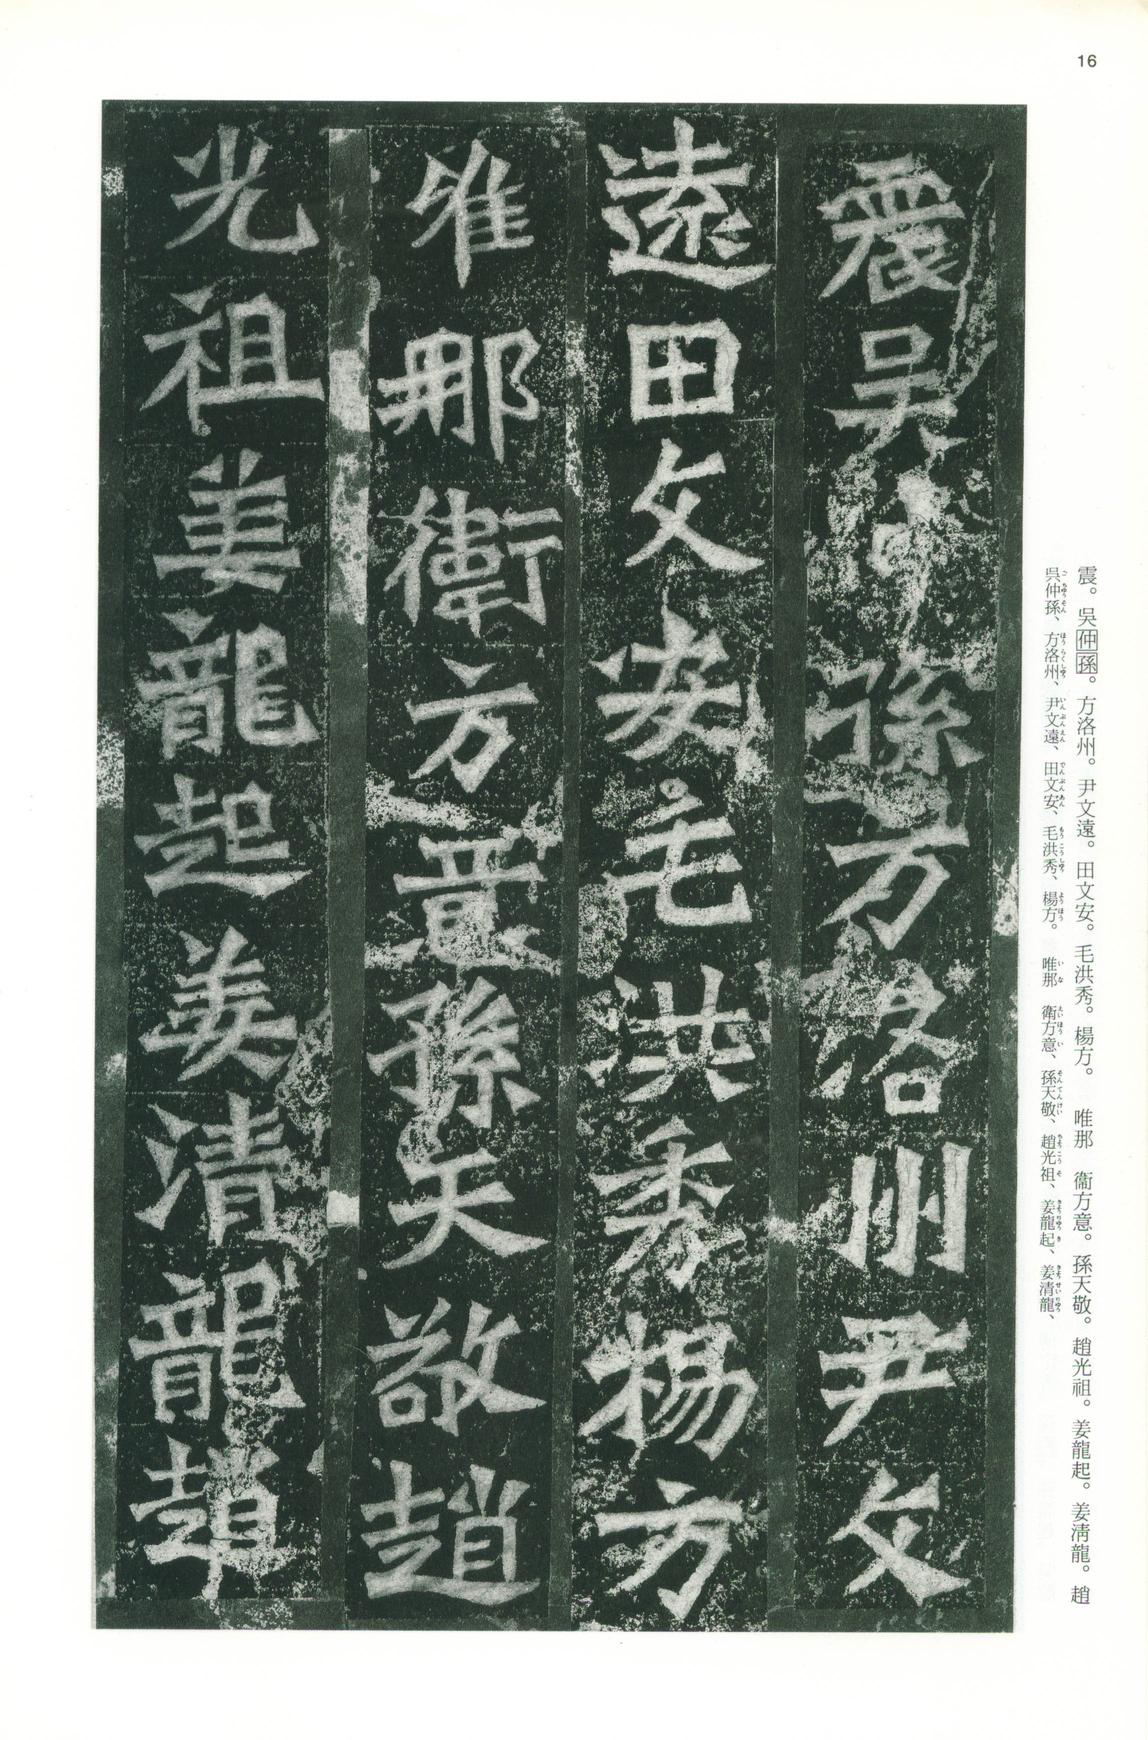 16
震。吳仲孫。方洛州。尹文遠。田文安。毛洪秀。楊方。　唯那　衞方意。孫天敬。趙光祖。姜龍起。姜淸龍。趙
呉仲孫、方洛州、尹文遠、田文安、毛洪秀、楊方。　唯那　衛方意、孫天敬、趙光祖、姜龍起、姜清龍、
震吳仲孫方洛州尹文
遠田文安毛洪秀楊方
唯那衛方意孫天敬趙
光祖姜龍起姜清龍趙